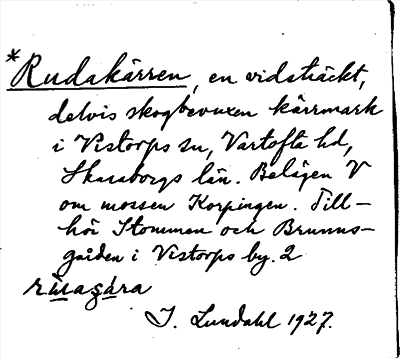 *Rudakärren, en vidsträckt,
delvis skogbevuxen kärrmark
i Vistorps sn, Vartofta hd,
Skaraborgs län. Belägen V
om mossen Korpingen. Till-
hör Stommen och Brunns-
gården i Vistorps by. 2
J. Lundahl 1927.